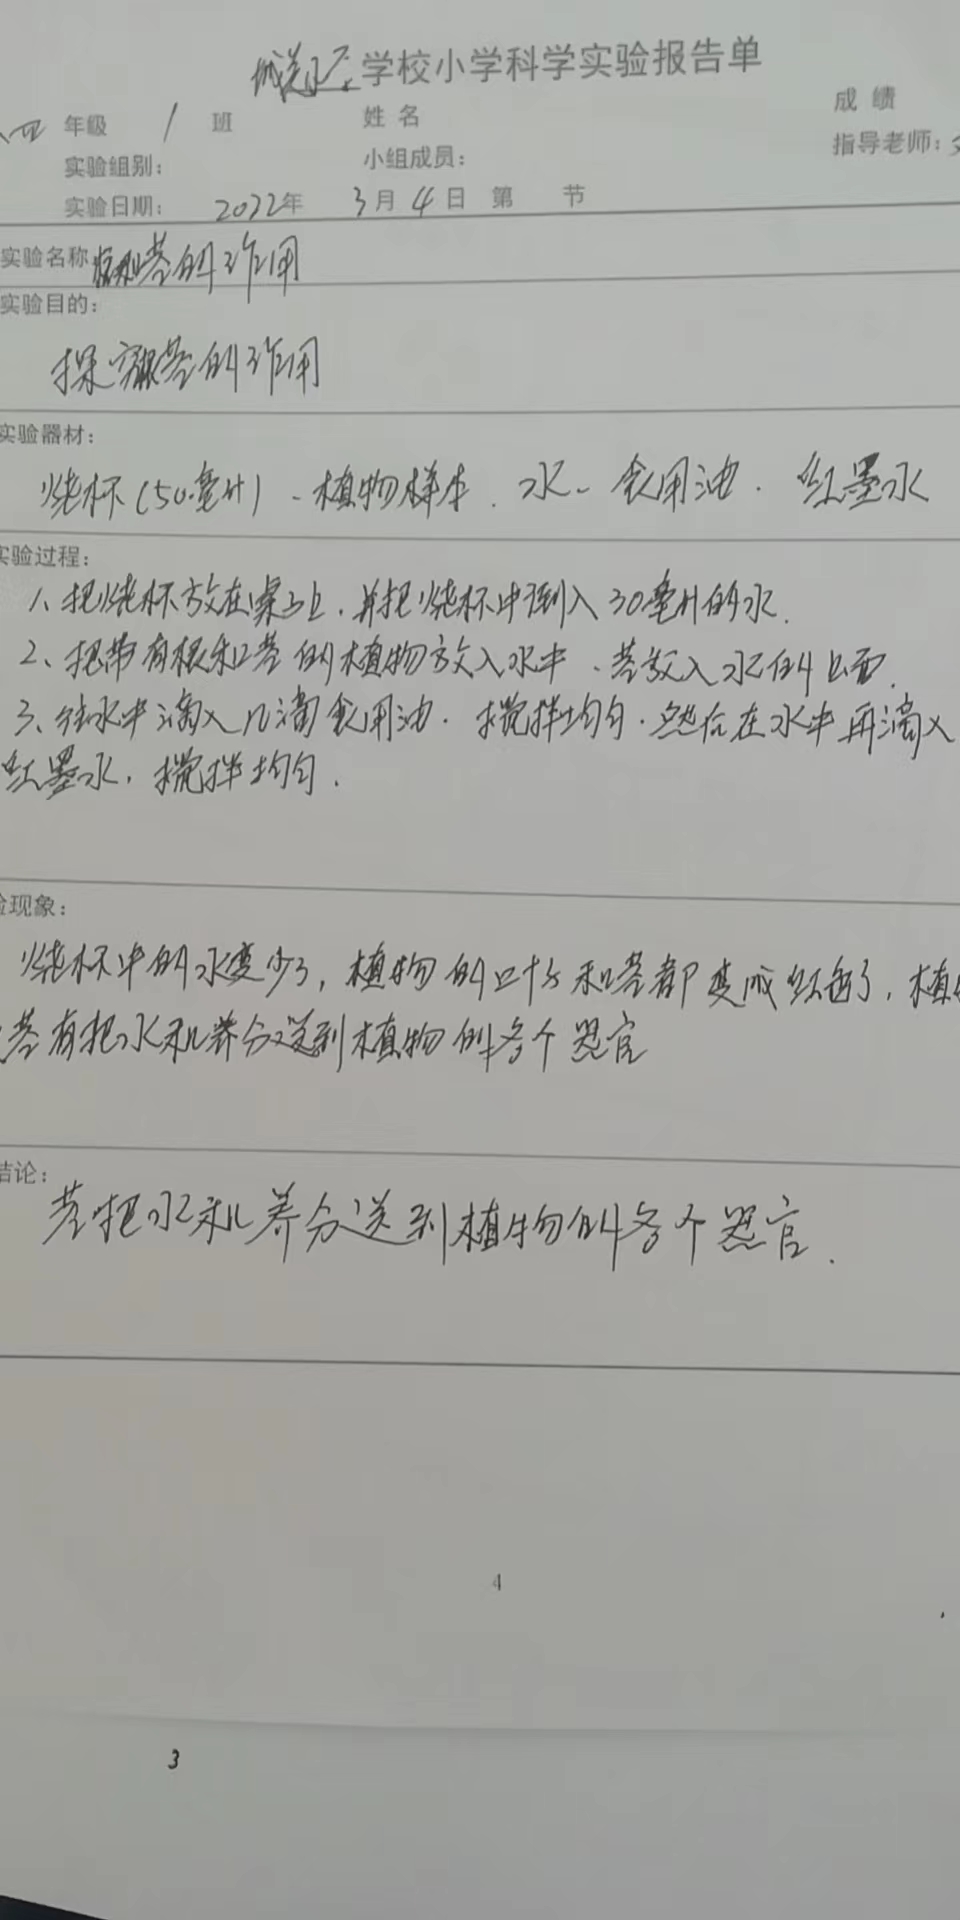 学校小学科学实验报告单
成绩
四年级 1班 姓名
指导老师:
实验组别: 小组成员:
实验日期: 2022年 3月4日 第 节
实验名称 根和茎的作用
实验目的:
探究根茎的作用
实验器材:
烧杯(50毫升)、植物样本、水、食用油、红墨水
实验过程:
1、把烧杯放在桌子上,并把烧杯中倒入30毫升的水.
2、把带有根和茎的植物放入水中、茎放入水的上面.
3、往水中滴入几滴食用油.搅拌均匀.然后在水中再滴入
红墨水,搅拌均匀.
验现象:
烧杯中的水变少了,植物的叶和茎都变成红色了,植
茎有把水和养分送到植物的各个器官
结论:
茎把水和养分送到植物的各个器官.
4
3